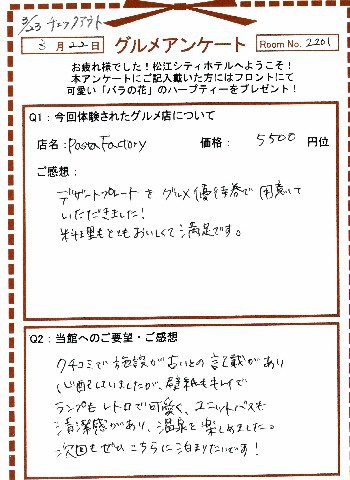 3/23 チェックアウト
3月22日 グルメアンケート Room No. 2201
お疲れ様でした！松江シティホテルへようこそ！
本アンケートにご記入戴いた方にはフロントにて
可愛い「バラの花」のハーブティーをプレゼント！
Q1：今回体験されたグルメ店について
店名：Pasta Factory 価格： 5500 円位
ご感想：
デザートプレートをグルメ優待券で用意して
いただきました！
料理もとてもおいしくて満足です。
Q2：当館へのご要望・ご感想
クチコミで施設が古いとの記載があり
心配していましたが、壁紙もキレイで
ランプもレトロで可愛く、ユニットバスも
清潔感があり、温泉も楽しめました。
次回もぜひこちらに泊まりたいです！